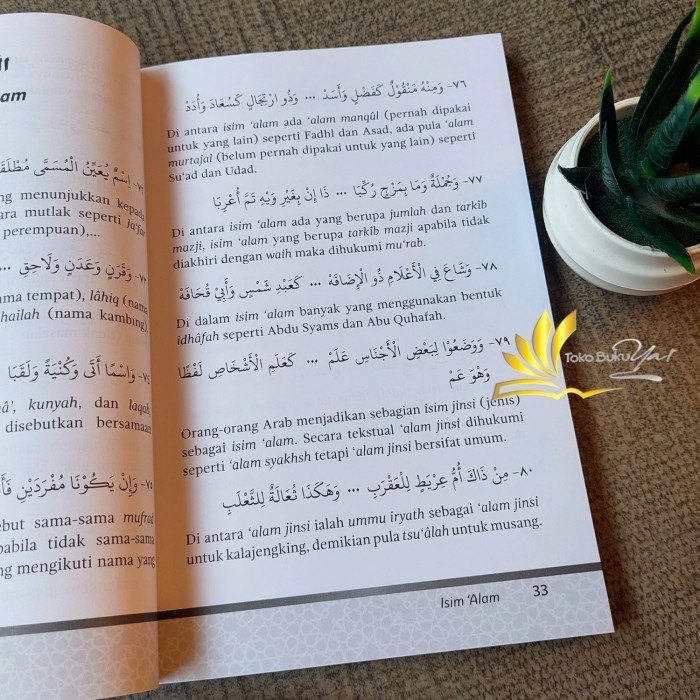 lam
٧٢- اِسْمٌ يُعَيِّنُ الْمُسَمَّى مُطْلَقَا
ng menunjukkan kepada
ara mutlak seperti Ja‘far
perempuan),...
٧٣- وَقَرَنٍ وَعَدَنٍ وَلَاحِقِ ...
ama tempat), lâhiq (nama
hailah (nama kambing)
٧٤- وَاسْمًا أَتَى وَكُنْيَةً وَلَقَبَا
kunyah, dan laqab
disebutkan bersamaan
٧٥- وَإِنْ يَكُوْنَا مُفْرَدَيْنِ
ebut sama-sama mufrad
pabila tidak sama-sama
ng mengikuti nama yang
٧٦- وَمِنْهُ مَنْقُوْلٌ كَفَضْلٍ وَأَسَدْ ... وَذُو ارْتِجَالٍ كَسُعَادَ وَأُدَدْ
Di antara isim ‘alam ada ‘alam manqûl (pernah dipakai
untuk yang lain) seperti Fadhl dan Asad, ada pula ‘alam
murtajal (belum pernah dipakai untuk yang lain) seperti
Su‘ad dan Udad.
٧٧- وَجُمْلَةٌ وَمَا بِمَزْجٍ رُكِّبَا ... ذَا إِنْ بِغَيْرِ وَيْهِ تَمَّ أُعْرِبَا
Di antara isim ‘alam ada yang berupa jumlah dan tarkîb
mazji, isim ‘alam yang berupa tarkîb mazji apabila tidak
diakhiri dengan waih maka dihukumi mu‘rab.
٧٨- وَشَاعَ فِي الْأَعْلَامِ ذُو الْإِضَافَهْ ... كَعَبْدِ شَمْسٍ وَأَبِيْ قُحَافَهْ
Di dalam isim ‘alam banyak yang menggunakan bentuk
idhâfah seperti Abdu Syams dan Abu Quhafah.
٧٩- وَوَضَعُوْا لِبَعْضِ الْأَجْنَاسِ عَلَمْ ... كَعَلَمِ الْأَشْخَاصِ لَفْظًا
وَهْوَ عَمْ
Orang-orang Arab menjadikan sebagian isim jinsi (jenis)
sebagai isim ‘alam. Secara tekstual ‘alam jinsi dihukumi
seperti ‘alam syakhsh tetapi ‘alam jinsi bersifat umum.
٨٠- مِنْ ذَاكَ أُمُّ عِرْيَطٍ لِلْعَقْرَبِ ... وَهَكَذَا ثُعَالَةٌ لِلثَّعْلَبِ
Di antara ‘alam jinsi ialah ummu iryath sebagai ‘alam jinsi
untuk kalajengking, demikian pula tsu‘âlah untuk musang.
Isim ‘Alam 33
Toko Buku Yar!